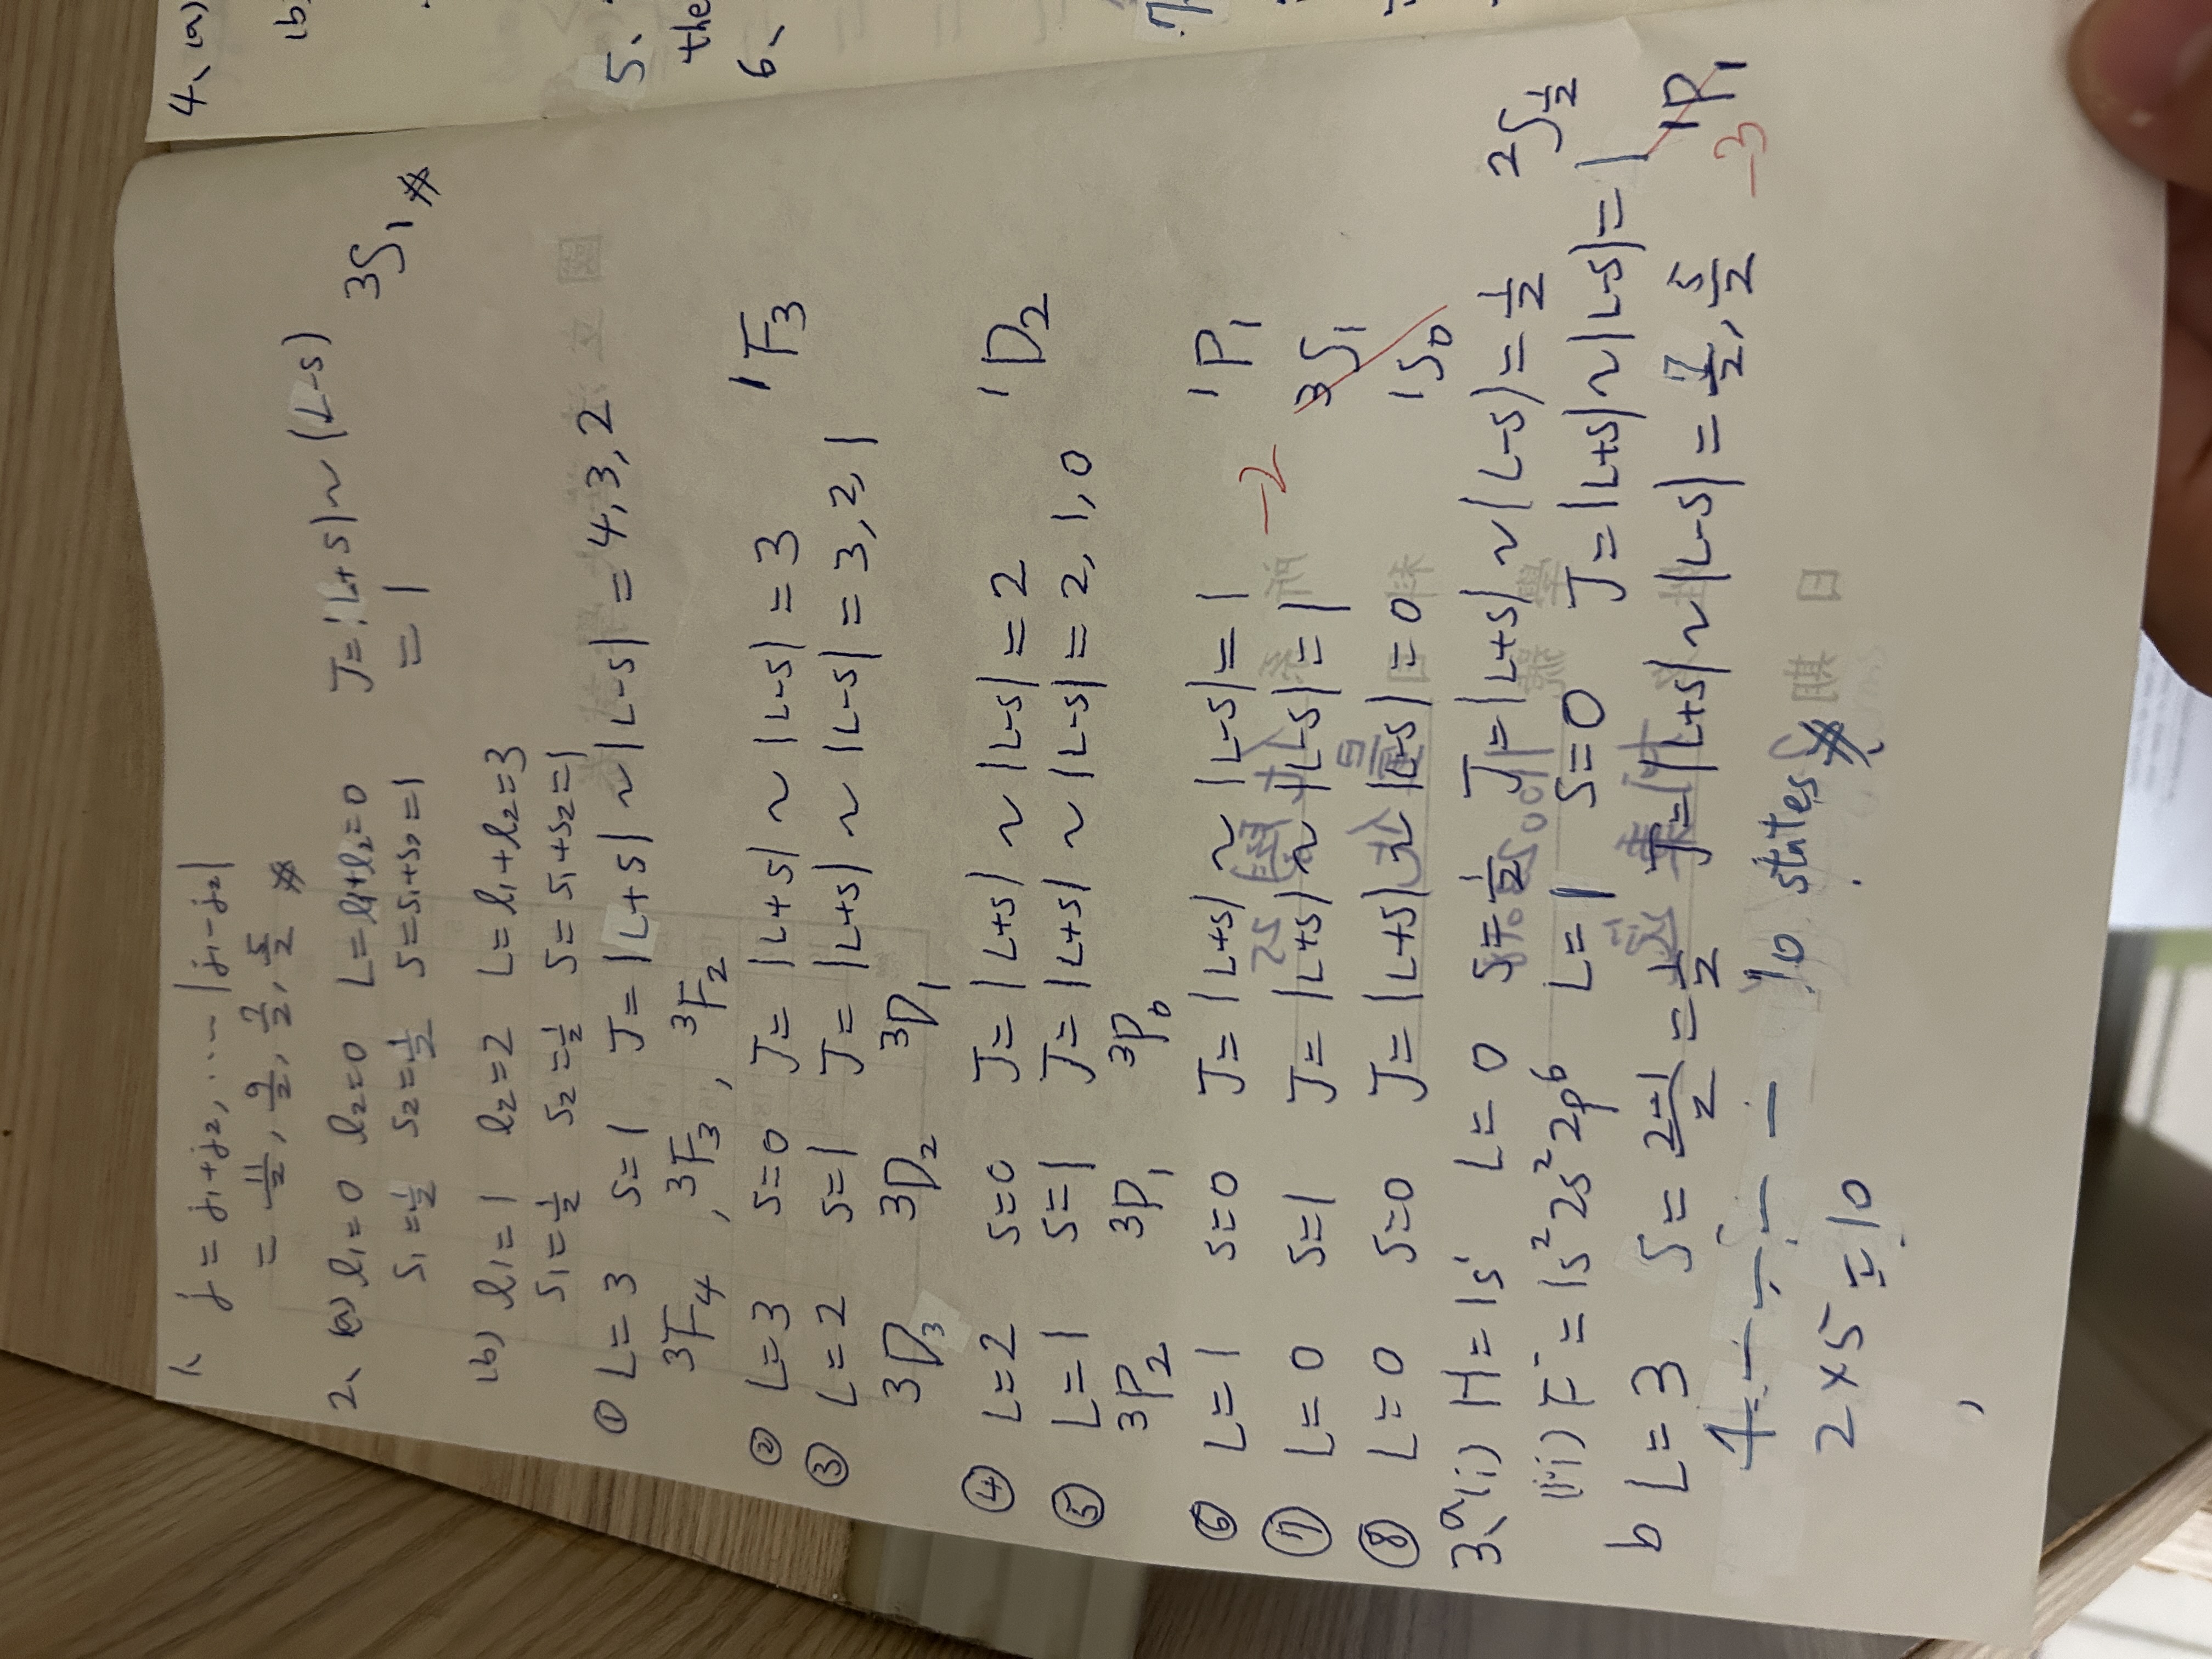 1、 j = j₁+j₂, ‥‥ |j₁-j₂|
= 11/2, 9/2, 7/2, 5/2 #
2、 (a) l₁=0 l₂=0 L=l₁+l₂=0 J=|L+S|~(L-S) ³S₁ #
S₁=1/2 S₂=1/2 S=S₁+S₂=1 = 1
(b) l₁=1 l₂=2 L=l₁+l₂=3
S₁=1/2 S₂=1/2 S=S₁+S₂=1
① L=3 S=1 J=|L+S|~|L-S|=4,3,2
³F₄, ³F₃, ³F₂
② L=3 S=0 J=|L+S|~|L-S|=3 ¹F₃
③ L=2 S=1 J=|L+S|~|L-S|=3,2,1
³D₃ ³D₂ ³D₁
④ L=2 S=0 J=|L+S|~|L-S|=2 ¹D₂
⑤ L=1 S=1 J=|L+S|~|L-S|=2,1,0
³P₂ ³P₁ ³P₀
⑥ L=1 S=0 J=|L+S|~|L-S|=1 ¹P₁
-2
⑦ L=0 S=1 J=|L+S|~|L-S|=1 ³S₁
⑧ L=0 S=0 J=|L+S|~|L-S|=0 ¹S₀
3、a(i) H=1s¹ L=0 S=1/2 J=|L+S|~|L-S|=1/2 ²S1/2
(iii) F⁻=1s²2s²2p⁶ L=1 S=0 J=|L+S|~|L-S|=1
¹P₁
-3
b L=3 S=(2-1)/2=1/2 J=|L+S|~|L-S|=7/2, 5/2
10 states #
2×5=10
4、(a)
(b)
5、
the
6、
7